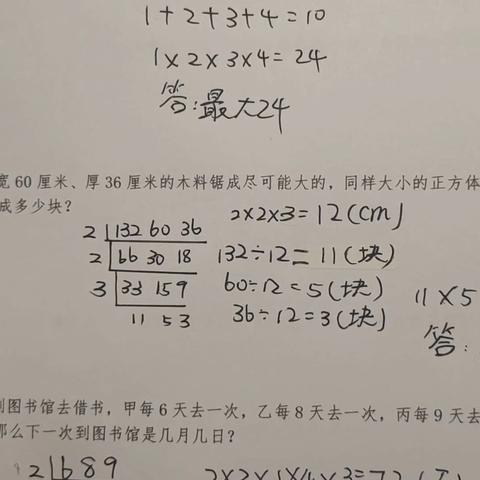 1+2+3+4=10
1×2×3×4=24
答:最大24
宽60厘米、厚36厘米的木料锯成尽可能大的，同样大小的正方体
成多少块？
2×2×3=12(cm)
2 132 60 36
2 66 30 18
132÷12=11(块)
3 33 15 9
60÷12=5(块)
11×5
11 5 3
36÷12=3(块)
答:
到图书馆去借书，甲每6天去一次，乙每8天去一次，丙每9天去
那么下一次到图书馆是几月几日？
2 6 8 9
2×2×1×4×3=72